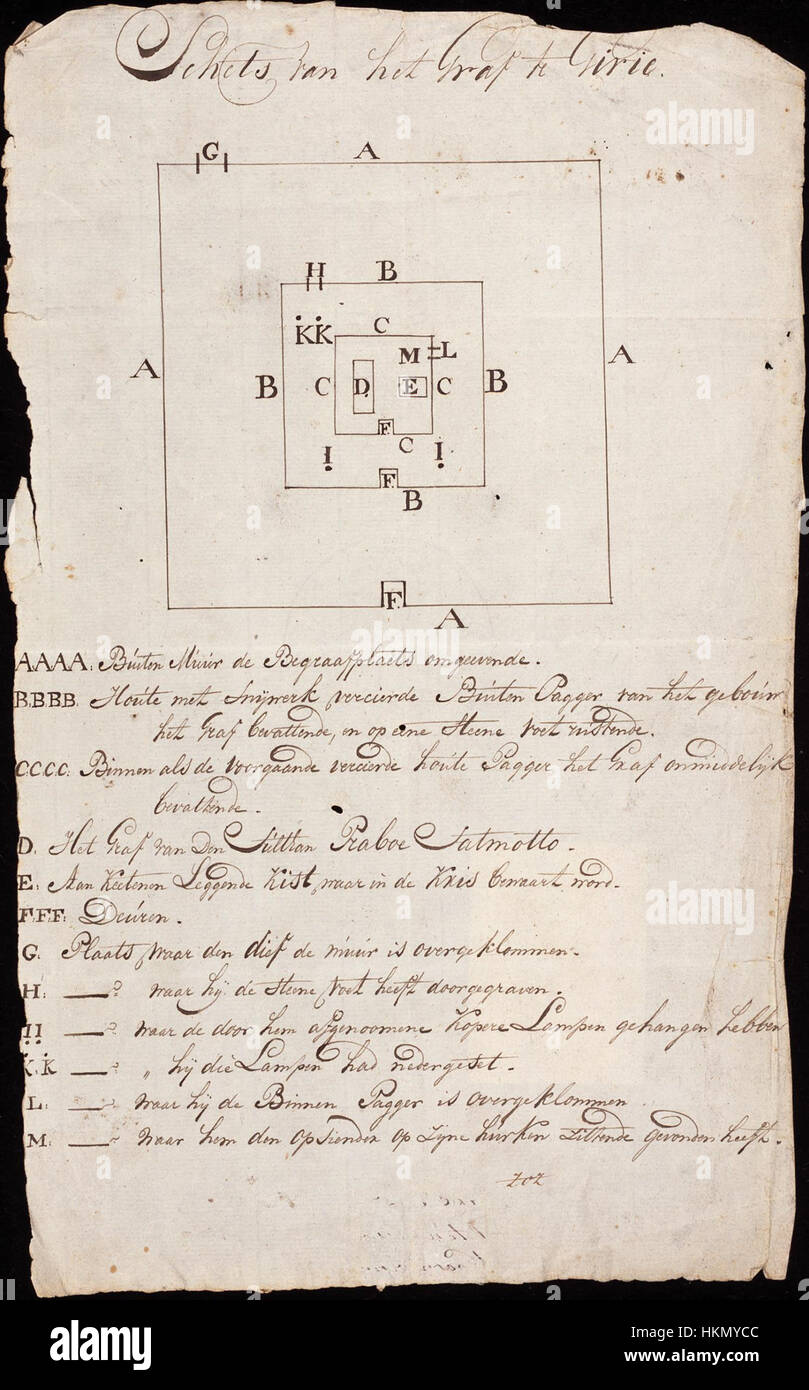 Schets van het Graf te Girie.
G A
H B
K K C
M L
A B C D E C B A
F
C
I I
F
B
F
A
A.A.A.A: Búiten Múúr de Begraafplaets omgeevende.
B.B.B.B. Houte met Snijwerk vercierde Búiten Pagger van het gebouw
het Graf bevattende, en op eene Steene voet rústende.
C.C.C.C: Binnen als de voorgaande vercierde houte Pagger het Graf onmiddelijk
bevattende.
D. Het Graf van Den Súlthan Praboe Satmotto.
E: Aan Keetenen Leggende Kist, waar in de Kris bewaart word.
F.F.F: Deúren.
G. Plaats, waar den dief de múúr is overgeklommen.
H: —— waar hij de Steene voet heeft doorgegraven.
I I: —— waar de door hem afgenoomene Kopere Lampen gehangen hebben
K. K —— „ hij die Lampen had nedergeset.
L: —— waar hij de Binnen Pagger is overgeklommen
M: —— waar hem den opsiender op zijne húrken zittende gevonden heeft.
alamy
alamy
alamy
alamy
a
a
alamy stock photo
HKMYCC
www.alamy.com